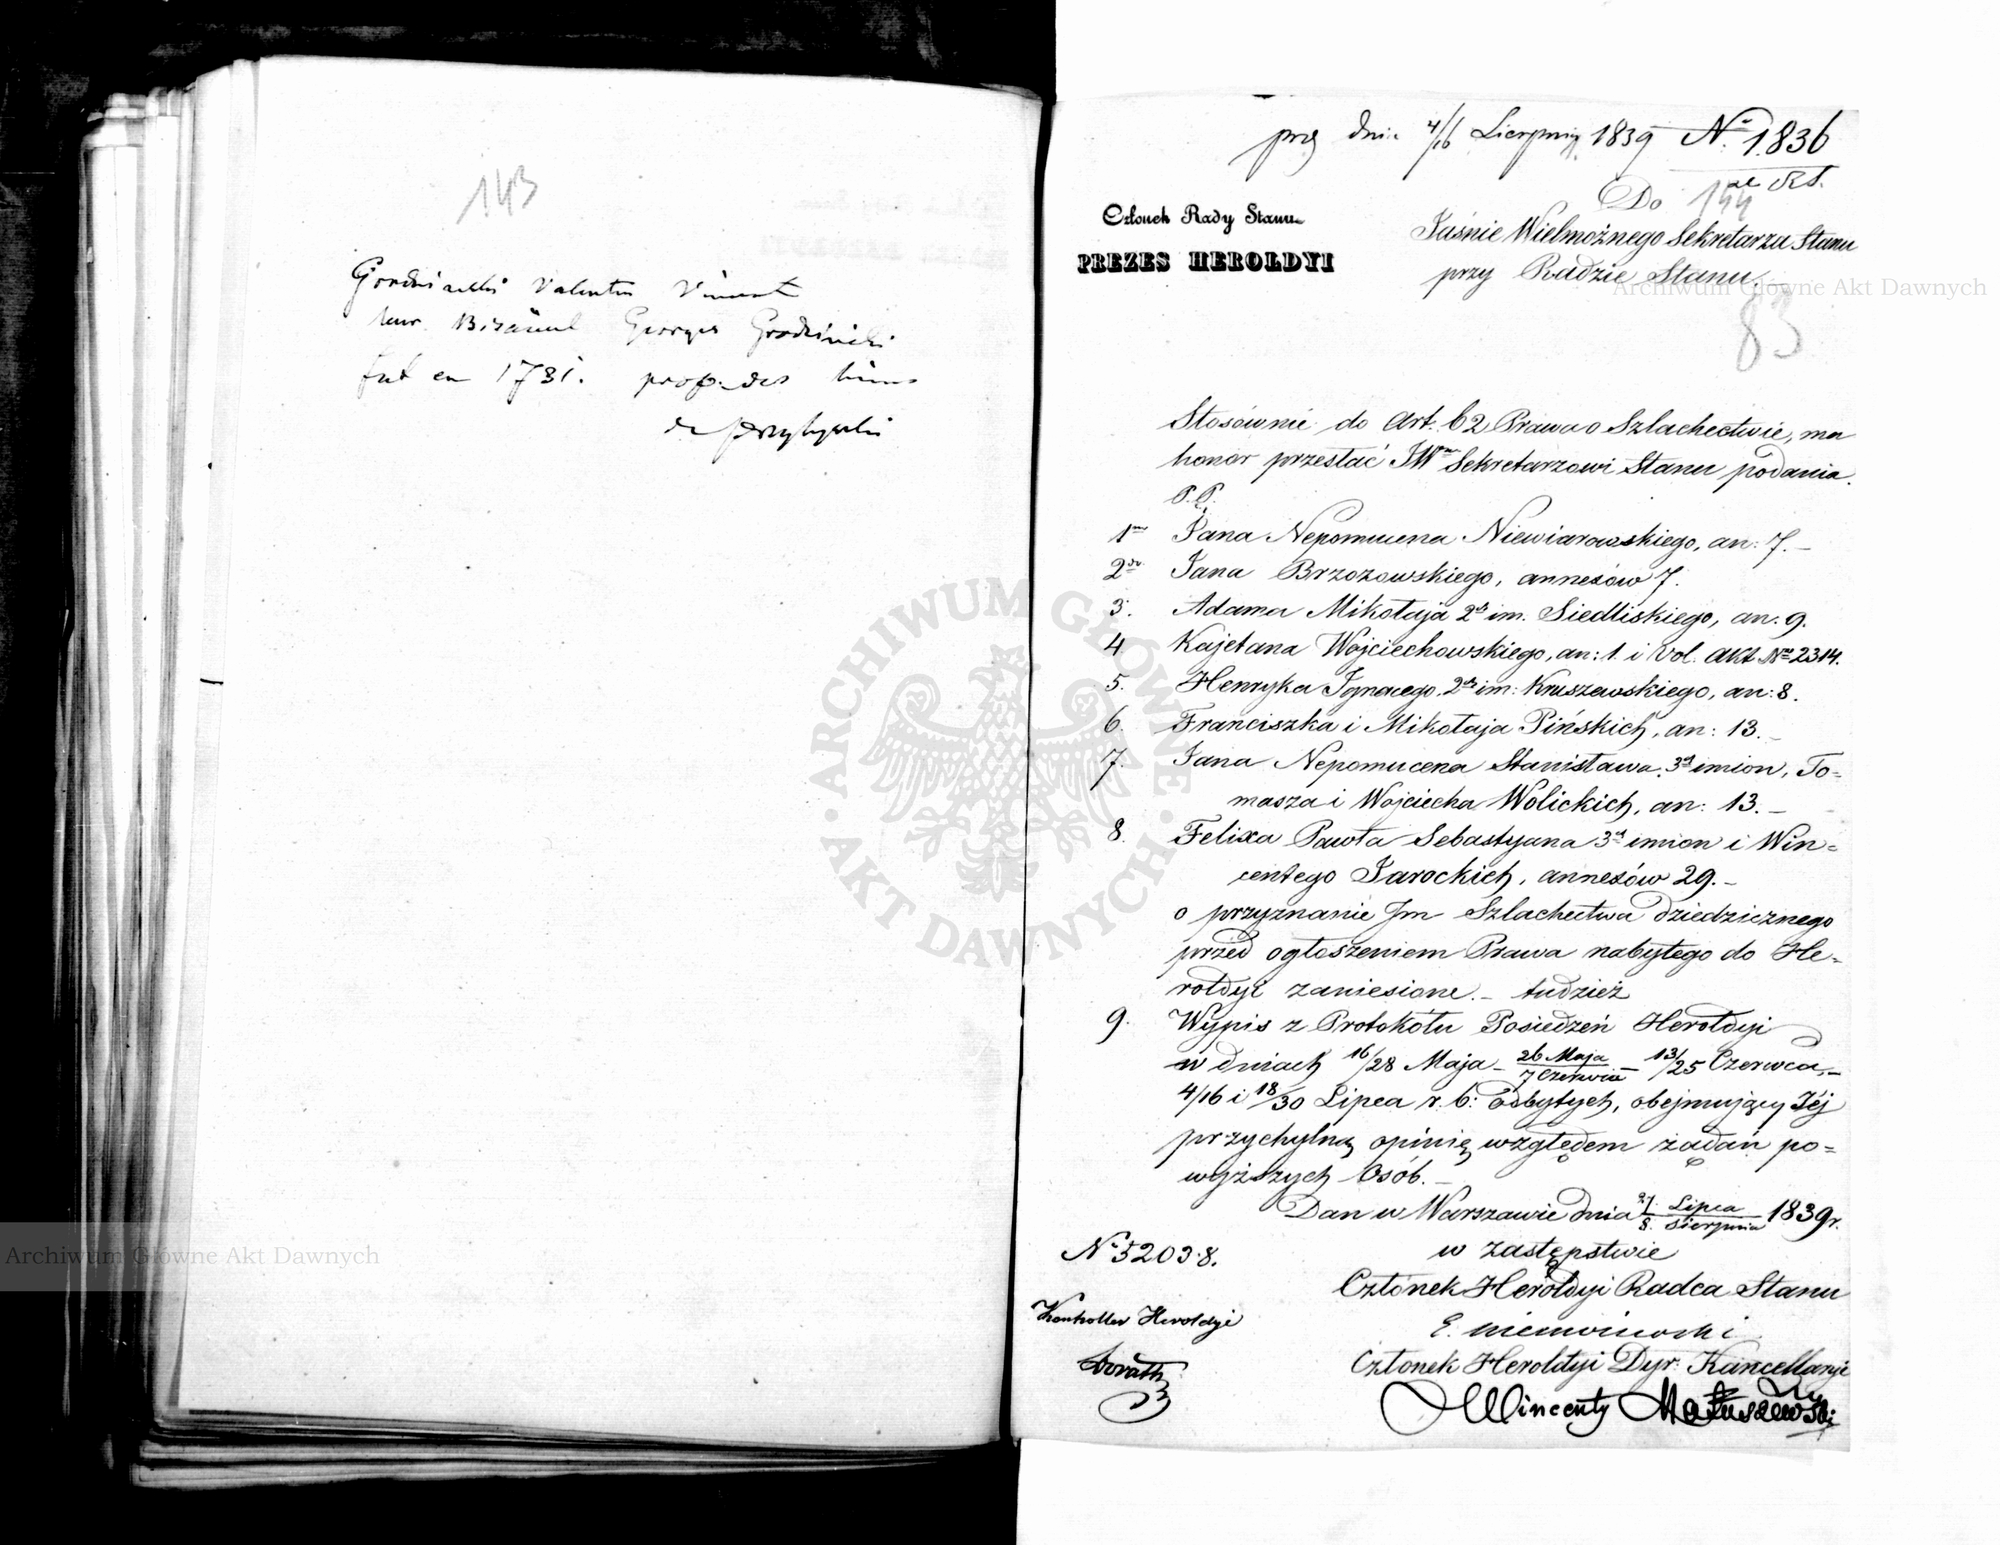 143
Valentin Vincent
Georges Grodzicki
fut en 1781. prop. des biens
de Przytycki
prez dnia 4/16 Sierpnia 1839 No 1836
Do 144
Członek Rady Stanu
PREZES HEROLDYI
Jaśnie Wielmożnego Sekretarza Stanu
przy Radzie Stanu.
83
Stosównie do Art. 62 Prawa o Szlachectwie, ma
honor przesłać JWmu Sekretarzowi Stanu podania
P.P.
1mo Jana Nepomucena Niewiarowskiego, an: 7.—
2do Jana Brzozowskiego, annexów 7.
3. Adama Mikołaja 2ch im. Siedliskiego, an: 9.
4 Kajetana Wojciechowskiego, an: 1. i Vol. Akt No 2314.
5. Henryka Ignacego 2ch im: Kruszewskiego, an: 8.
6. Franciszka i Mikołaja Pińskich, an: 13.—
7. Jana Nepomucena Stanisława 3ch imion, To=
masza i Wojciecha Wolickich, an: 13.—
8. Felixa Pawła Sebastyana 3ch imion i Win=
centego Jarockich, annexów 29.—
o przyznanie Im Szlachectwa dziedzicznego
przed ogłoszeniem Prawa nabytego do He=
roldyi zaniesione.— tudzież
9. Wypis z Protokółu Posiedzeń Heroldyi
w dniach 16/28 Maja — 26 Maja/7 Czerwca — 13/25 Czerwca,—
4/16 i 18/30 Lipca r. b: odbytych, obejmujący Jéj
przychylną opinię względem żądań po=
wyższych Osób.—
Dan w Warszawie dnia 27 Lipca/8 Sierpnia 1839 r.
w zastępstwie
No 52038.
Członek Heroldyi Radca Stanu
Kontroller Heroldyi
E. Niemoiewski
Członek Heroldyi Dyr: Kancellaryi
Wincenty Matuszewski
Archiwum Główne Akt Dawnych
Archiwum Główne Akt Dawnych
ARCHIWUM GŁÓWNE AKT DAWNYCH